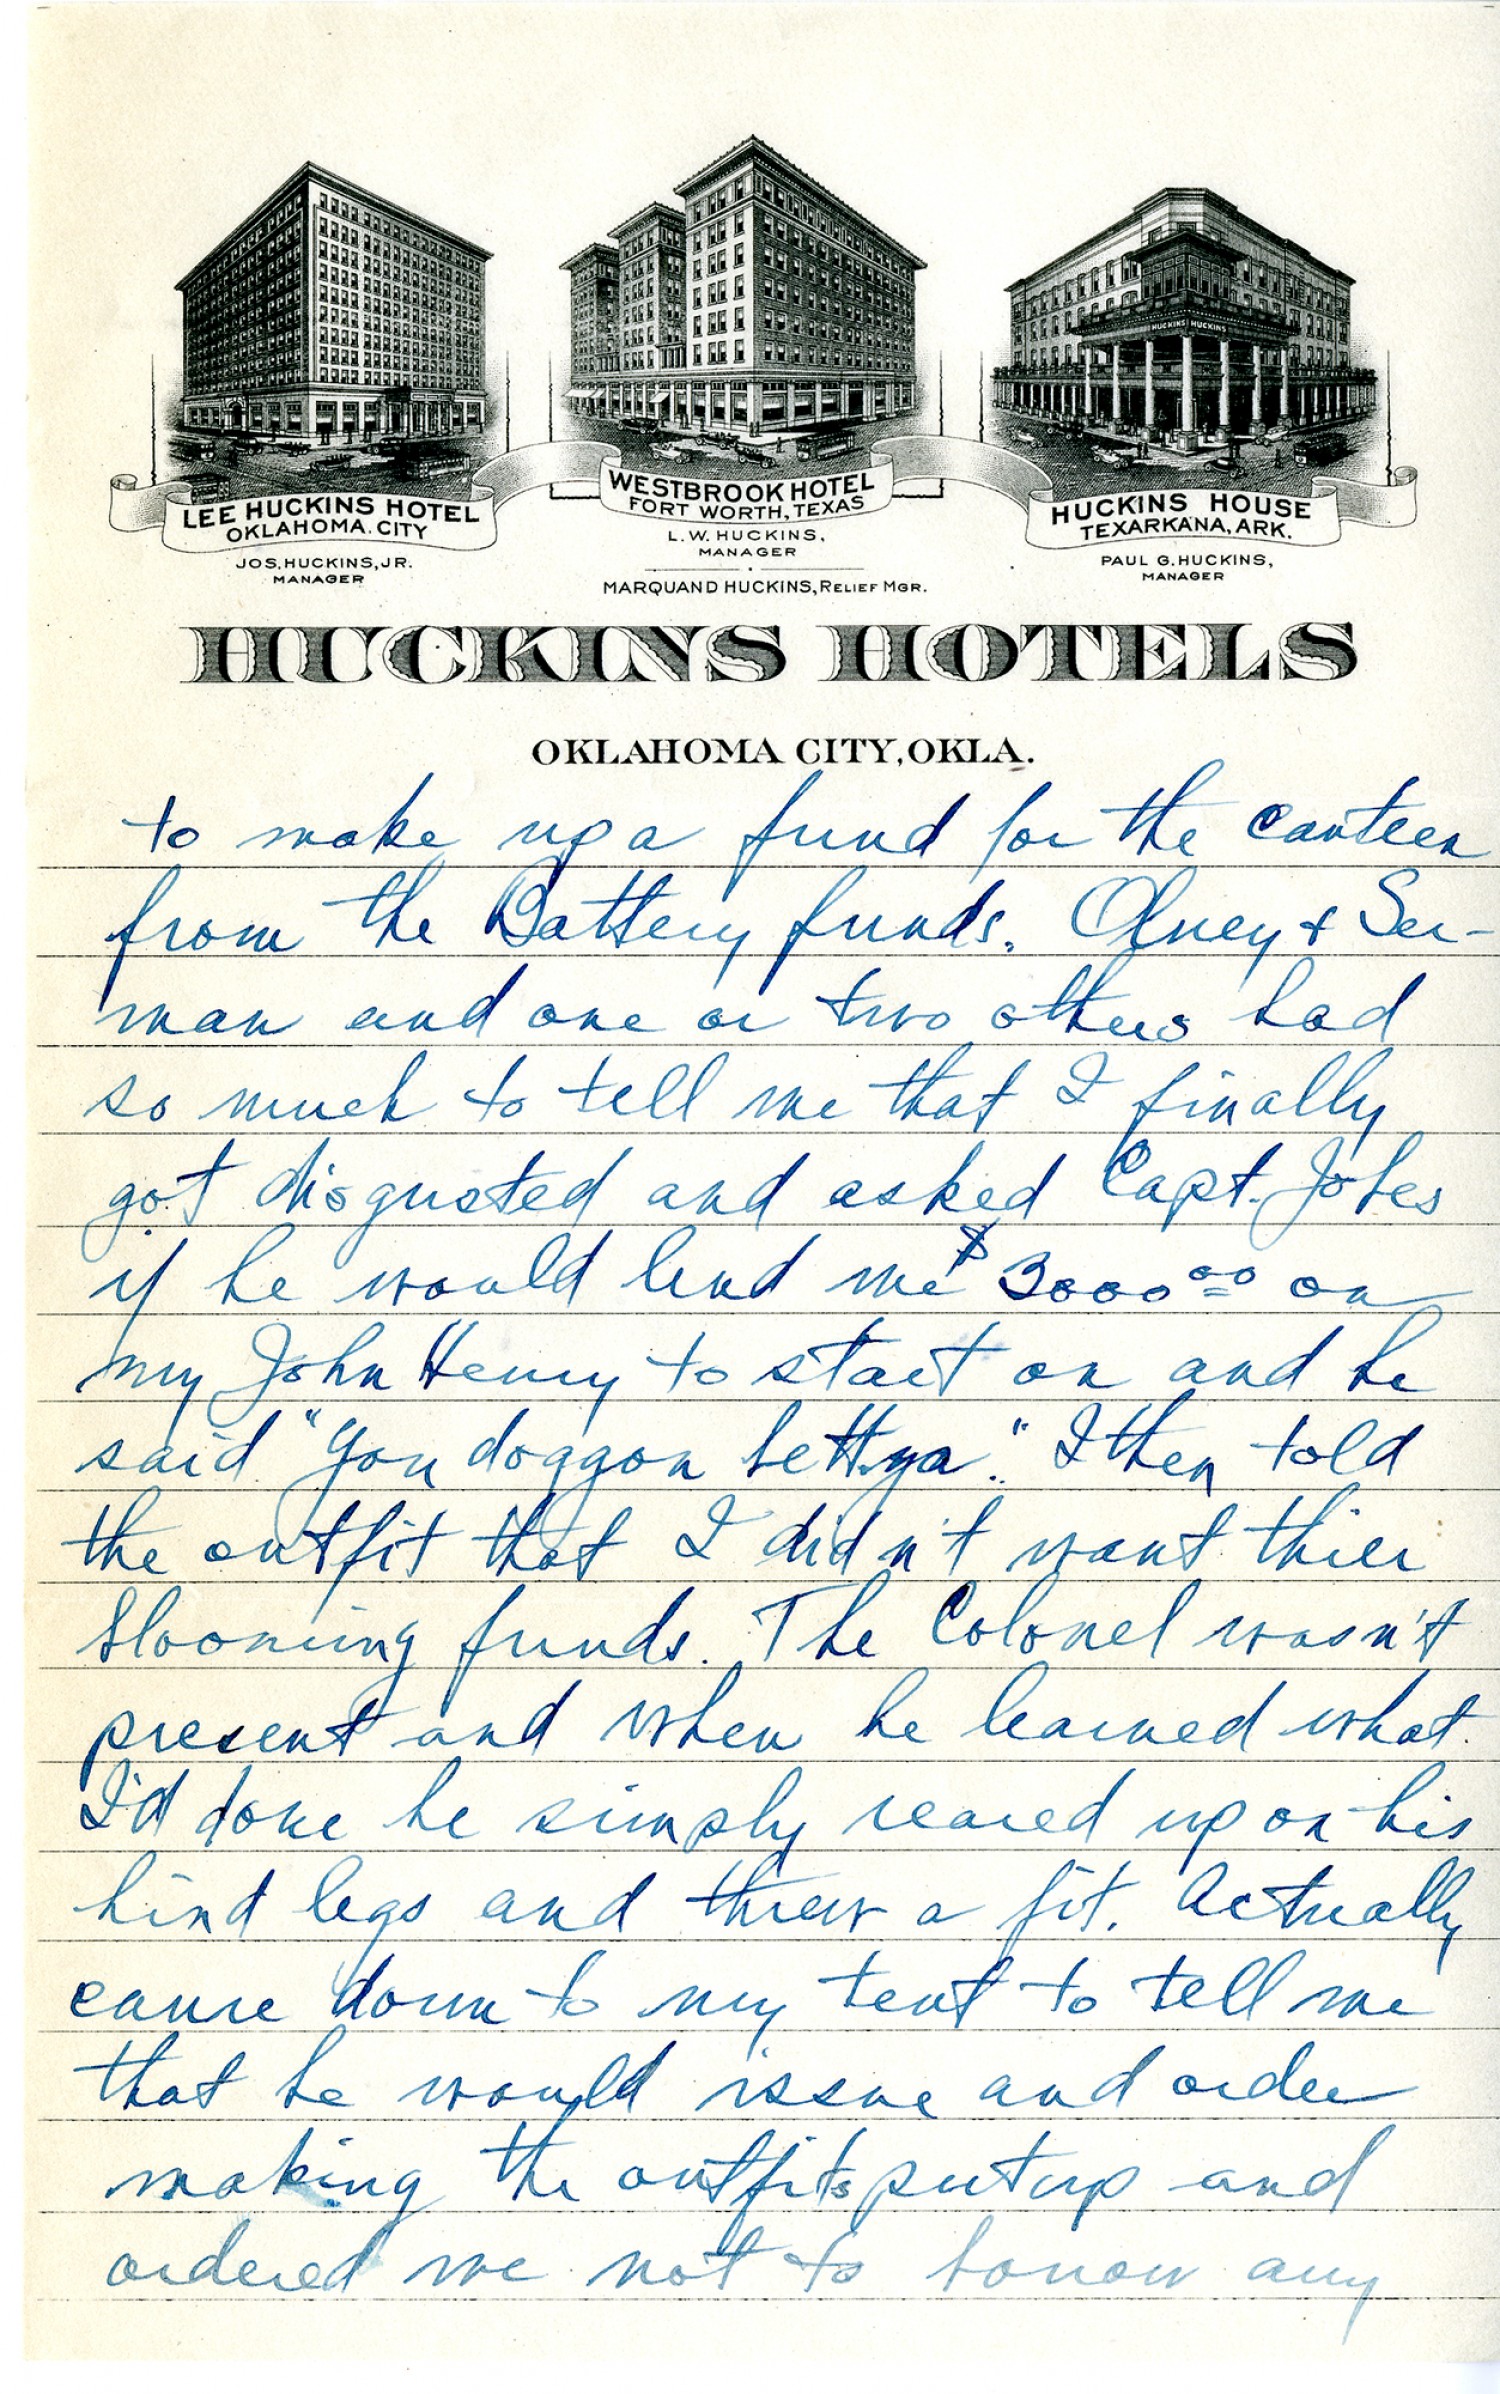 HUCKINS HUCKINS
LEE HUCKINS HOTEL
OKLAHOMA.CITY
JOS.HUCKINS,JR.
MANAGER
WESTBROOK HOTEL
FORT WORTH,TEXAS
L.W.HUCKINS,
MANAGER
MARQUAND HUCKINS, RELIEF MGR.
HUCKINS HOUSE
TEXARKANA, ARK.
PAUL G.HUCKINS,
MANAGER
HUCKINS HOTELS
OKLAHOMA CITY, OKLA.
to make up a fund for the canteen
from the Battery funds. Olney + Ser-
man and one or two others had
so much to tell me that I finally
got disgusted and asked Capt. Jobes
if he would lend me $3000 00 on
my John Henry to start on and he
said "You doggon bettya." I then told
the outfit that I didn't want thier
blooming funds. The Colonel wasn't
present and when he learned what
I'd done he simply reared up on his
hind legs and threw a fit. Actually
came down to my tent to tell me
that he would issue and order
making the outfits put up and
ordered me not to borrow any